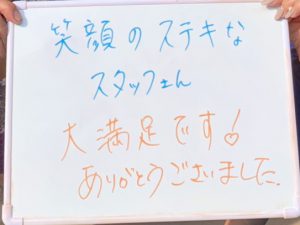 笑顔のステキな
スタッフさん
大満足です♡
ありがとうございました.